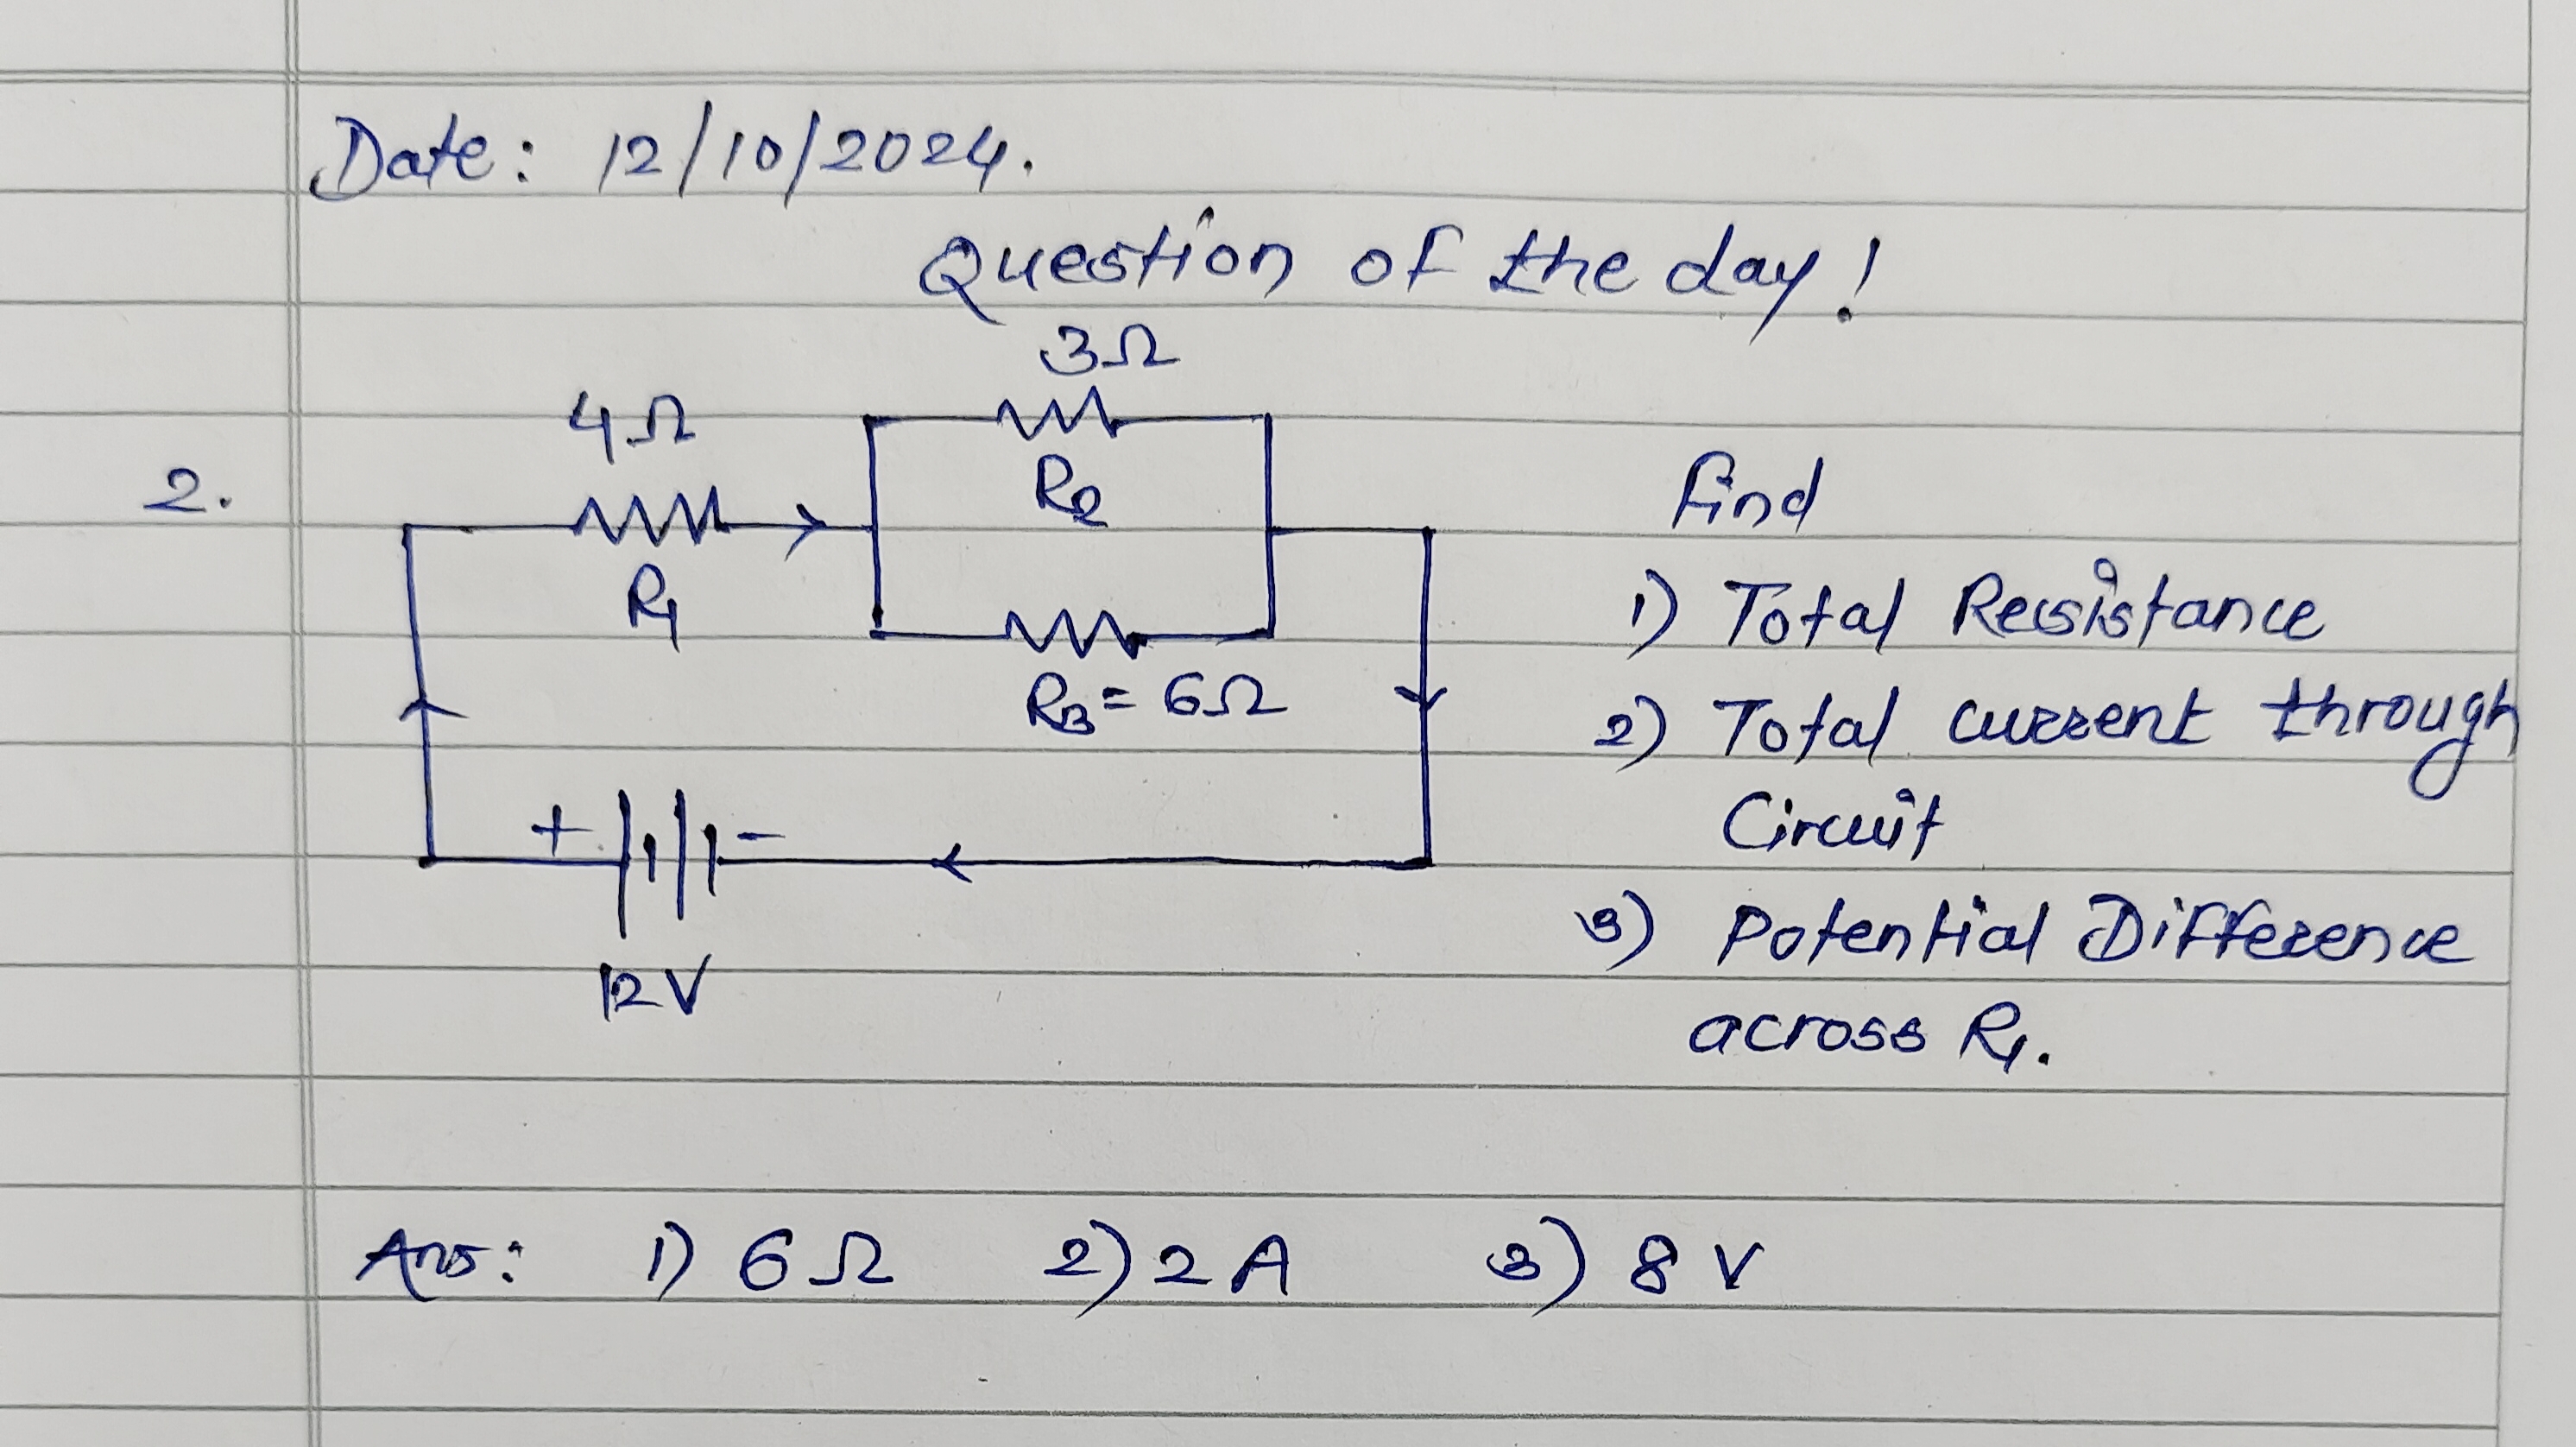 Date: 12/10/2024.
Question of the day!
3Ω
4Ω
2.
R2
R1
R3 = 6Ω
+
-
12V
find
1) Total Resistance
2) Total current through
Circuit
3) Potential Difference
across R1.
Ans: 1) 6Ω 2) 2 A 3) 8 V